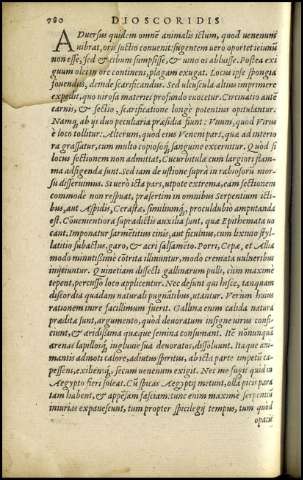 780 DIOSCORIDIS
ADuersus quidem omne animalis ictum, quod uenenum
uibrat, oris suctio conuenit: sugentem uero oportet ieiunū
non esse, sed & cibum sumpsisse, & uino os abluisse. Postea exi
guum olei in ore continens, plagam exugat. Locus ipse spongia
fouendus, deinde scarificandus. Sed ulcuscula altius imprimere
expedit, quo uirosa materies profundo euocetur. Circūcisio autē
carnis, & sectio, scarificatione longè potentius opitulantur.
Namq; ab ijs duo peculiaria præsidia sunt: Vnum, quod Virus
è loco tollitur: Alterum, quod eius Veneni pars, quæ ad interio
ra grassatur, cum multo copiosoq; sanguine exceruitur. Quod si
locus sectionem non admittat, Cucurbitulæ cum largiori flam-
ma adigenda sunt. Sed iam de ustione suprà in rabiosorū mor-
su disseruimus. Si uerò icta pars, utpote extrema, eam sectionem
commodè non respuat, præsertim in omnibus Serpentum icti-
bus, aut Aspidis, Cerastæ, similiumq;, proculdubio amputanda
est. Conueniuntq; supradictis auxilia sunt, quæ Epithemata uo
cant. Imponitur sarmētitius cinis, aut ficulnus, cum lixiuio styl-
latitio subactus, garo, & acri salsamēto. Porri, Cepæ, et Allia
modo minutissimè cōtrita illinuntur, modo cremata uulneribus
inijciuntur. Quinetiam dissecti gallinarum pulli, etiam maximè
tepent, percusso loco applicentur. Nec desunt qui hisce, tanquam
discordia quadam naturali pugnātibus, utantur. Verum huius
rationem inire facillimum fuerit. Gallina enim calida natura
prædita sunt, argumento, quòd deuoratum insigne uenenum confi
ciunt, & aridissima quæque semina consumant. Itē nōnunquā
arenas lapillosq; ingluuie sua deuoratos, dissoluunt. Itaque ani-
mantis admoti calore, adiutus spiritus, ab icta parte impetū ca-
pessens, exiliensq; secum uenenum exigit. Nec me fugit quid in
Aegypto fieri soleat. Cū spicas Aegyptij metunt, olla picis para
tam habent, & appēsam fasciam. tunc enim maximè serpentū
iniurias expauescunt, tum propter spicilegij tempus, tum quòd
opacis